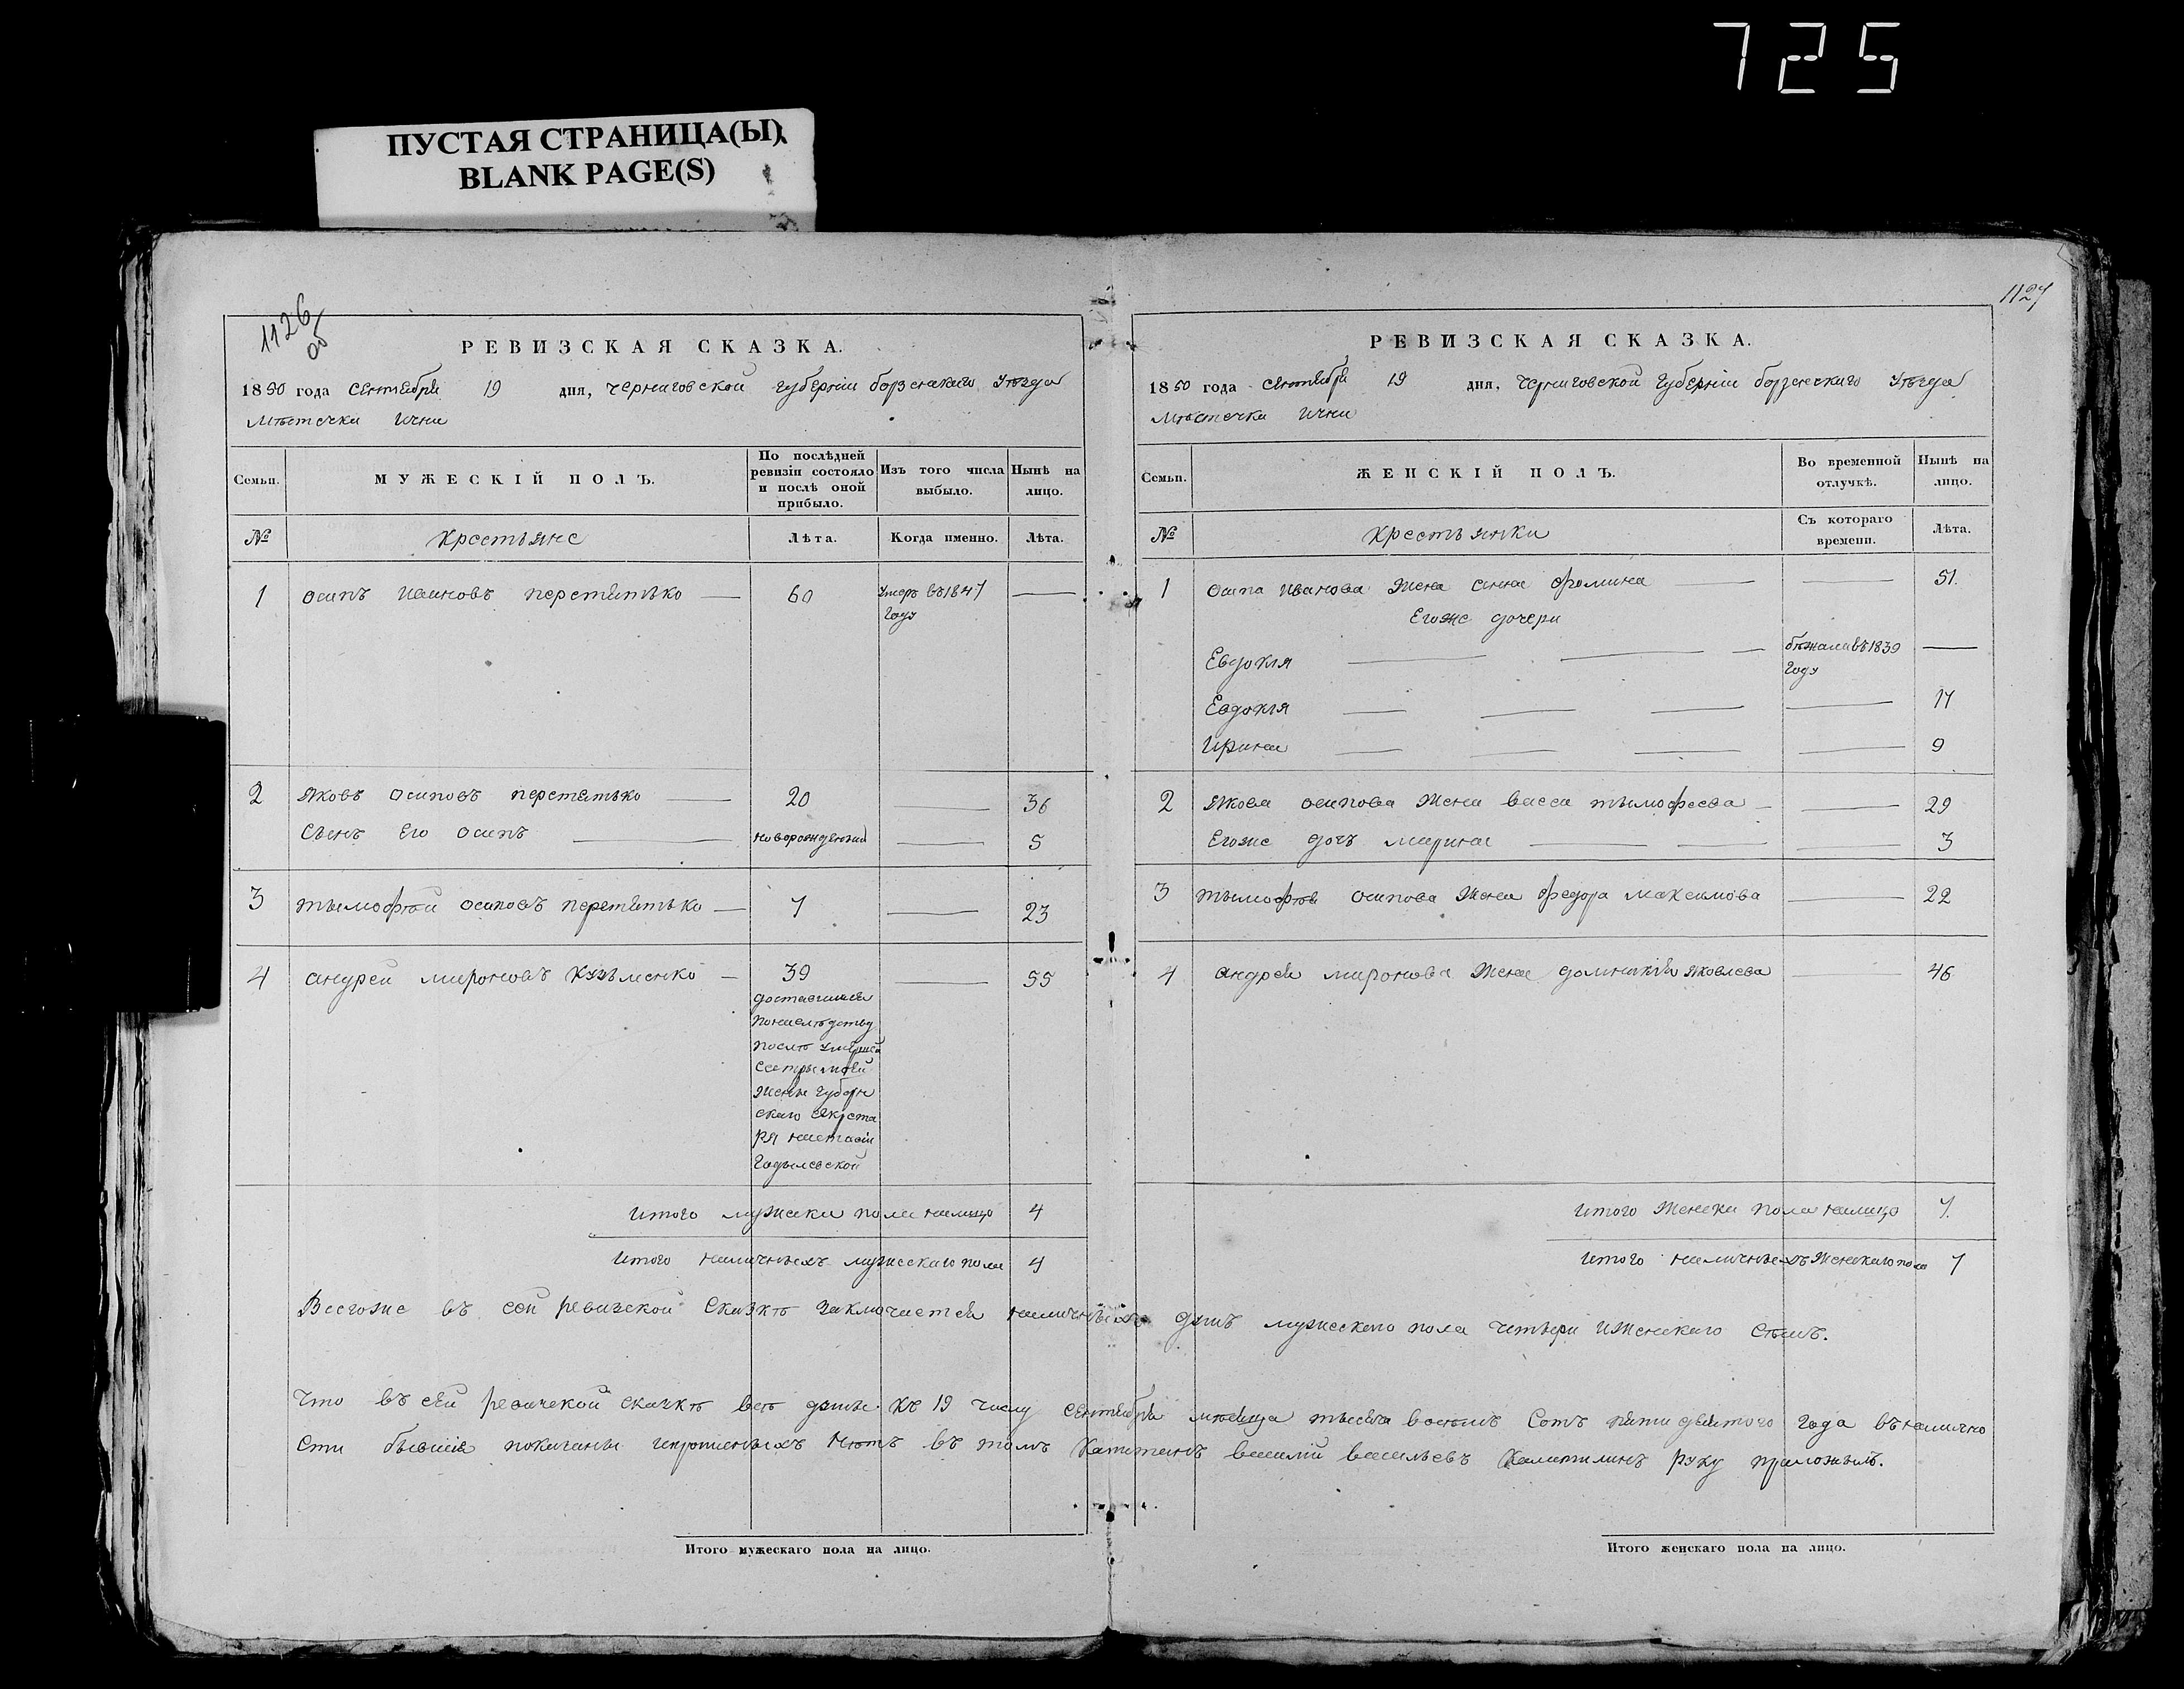 725
ПУСТАЯ СТРАНИЦА(Ы)
BLANK PAGE(S)
1126
об
РЕВИЗСКАЯ СКАЗКА.
1850 года сентября 19 дня, черниговской губернии борзенскаго уѣзда
мѣстечка ични
Семьи. МУЖЕСКІЙ ПОЛЪ. По послѣдней ревизіи состояло и послѣ оной прибыло. Изъ того числа выбыло. Нынѣ на лицо.
№ Крестьяне Лѣта. Когда именно. Лѣта.
1 осипъ ивановъ перетятько — 60 умеръ въ 1847 году —
2 яковъ осиповъ перетятько — 20 — 36
сынъ его осипъ — новорожденный — 5
3 тымофѣй осиповъ перетятько — 7 — 23
4 андрей мироновъ кузьменко — 39 — 55
доставшися
понаслѣдству
послѣ умершей
сестры моей
жены губерн
скаго секрета
ря настасіи
итого мужска пола налицо 4
итого наличныхъ мужескаго пола 4
1127
РЕВИЗСКАЯ СКАЗКА.
1850 года сентября 19 дня, черниговской губернии борзенскаго уѣзда
мѣстечка ични
Семьи. ЖЕНСКІЙ ПОЛЪ. Во временной отлучкѣ. Нынѣ на лицо.
№ крестьянки Съ котораго времени. Лѣта.
1 осипа иванова жена анна фомина — — 51.
Егоже дочери
Евдокія — — — бѣжала въ 1839 году —
Евдокія — — — — 17
Ирина — — — — 9
2 якова осипова жена васса тымофеева — — 29
егоже дочъ марина — — — 3
3 тымофѣя осипова жена федора максимова — 22
4 андрея миронова жена домникія яковлева — 46
итого женска пола налицо 7.
итого наличныхъ женскаго пола 7
Всегоже въ сей ревизской сказкѣ заключается наличныхъ душъ мужескаго пола четыри иженскаго сѣмъ.
Что въ сей ревизской сказкѣ всѣ душы къ 19 числу сентября мѣсяца тысяча восемъ сотъ пятидесятого года въналично
сти бывшія показаны ипропиеныхъ нѣтъ въ томъ капитанъ василій васильевъ руку приложылъ.
Итого мужескаго пола на лицо.
Итого женскаго пола на лицо.